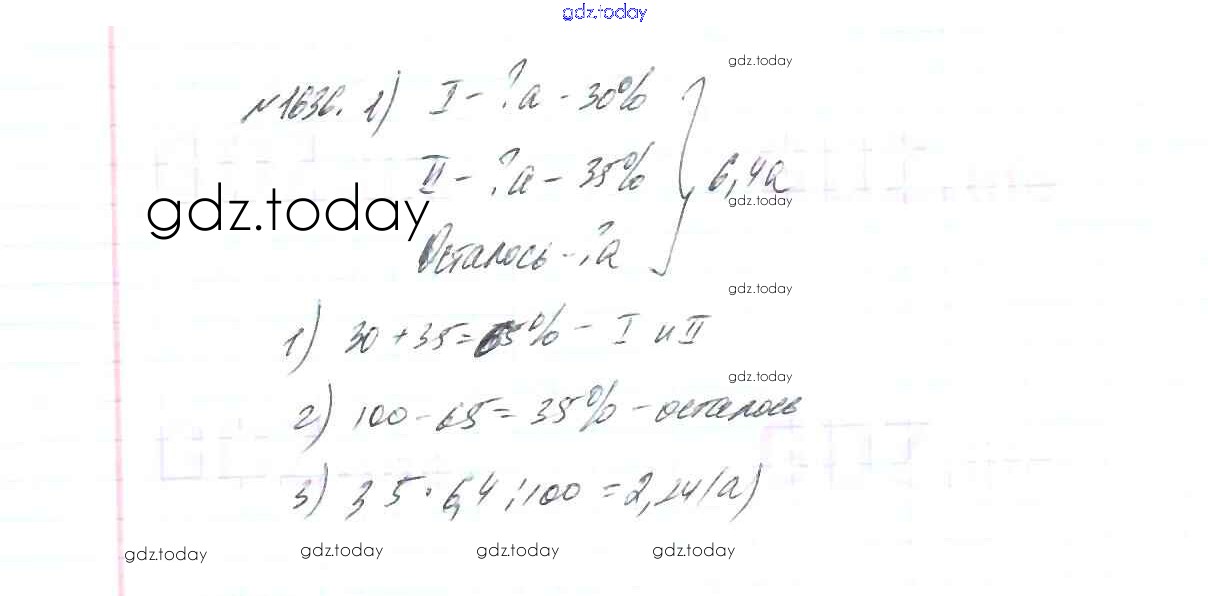 gdz.today
gdz.today
№1636. 1) I - ?а - 30%
II - ?а - 35%
6,4а
gdz.today
gdz.today
Осталось - ?а
gdz.today
1) 30 + 35 = 65% - I и II
gdz.today
2) 100 - 65 = 35% - осталось
3) 35 · 6,4 : 100 = 2,24 (а)
gdz.today gdz.today gdz.today gdz.today